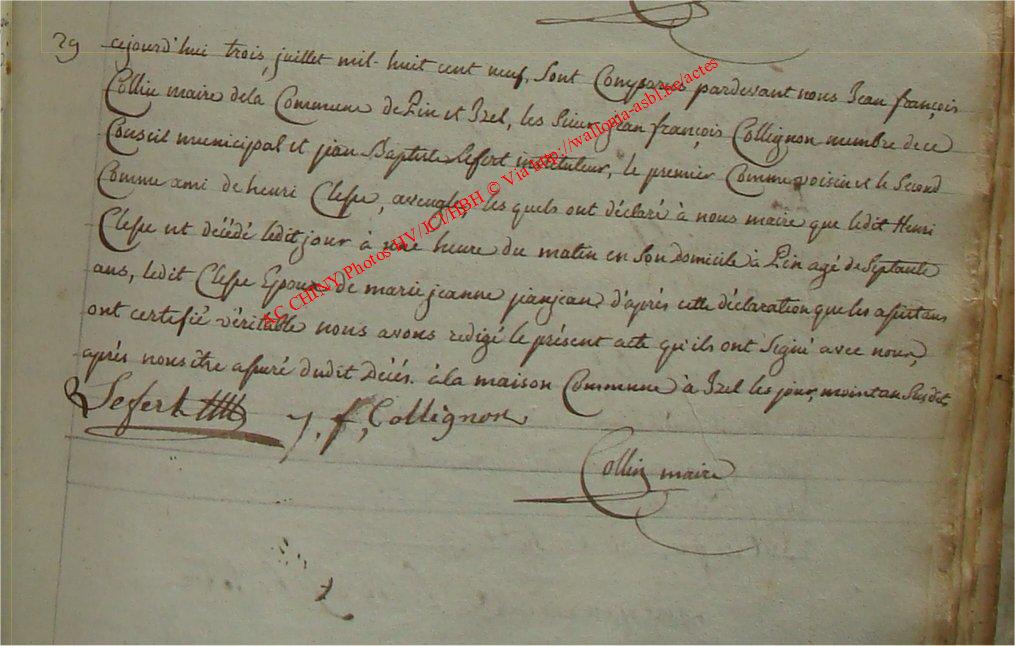 29 cejourd'hui trois juillet mil-huit cent neuf, sont Comparus pardevant nous Jean françois
Collin maire dela Commune de Pin et Izel, les sieurs Jean françois Collignon membre de ce
Conseil municipal et jean Baptiste Lefort instituteur, le premier Comme voisin et le second
Comme ami de henri Clesse, aveugle, les quels ont déclaré à nous maire que ledit Henri
Clesse est décédé ledit jour à une heure du matin en son domicile à Pin agé de Septante
ans, ledit Clesse Epoux de marie jeanne jianjean d'après cette déclaration que les assistans
ont certifié véritable nous avons redigé le présent acte qu'ils ont signé avec nous,
après nous être assuré dudit Décés. à la maison Commune à Izel les jour, mois et an susdits
Lefort J. f. Collignon
Collin maire
AC CHINY Photos HV/JCI/HBH © Via http://wallonia-asbl.be/actes